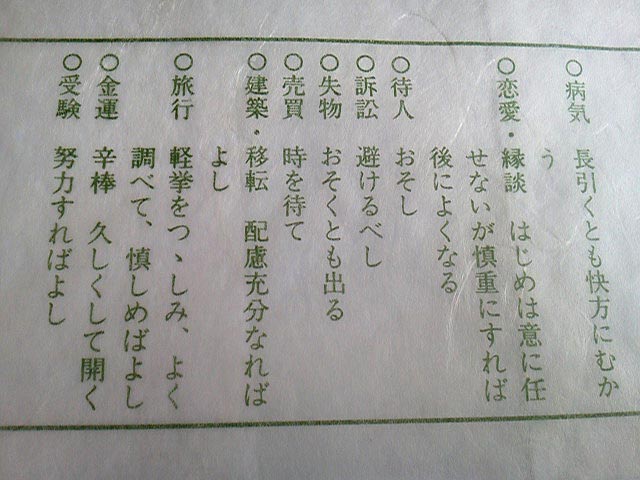 ○病気　長引くとも快方にむか
う
○恋愛・縁談　はじめは意に任
せないが慎重にすれば
後によくなる
○待人　おそし
○訴訟　避けるべし
○失物　おそくとも出る
○売買　時を待て
○建築・移転　配慮充分なれば
よし
○旅行　軽挙をつゝしみ、よく
調べて、慎しめばよし
○金運　辛棒　久しくして開く
○受験　努力すればよし